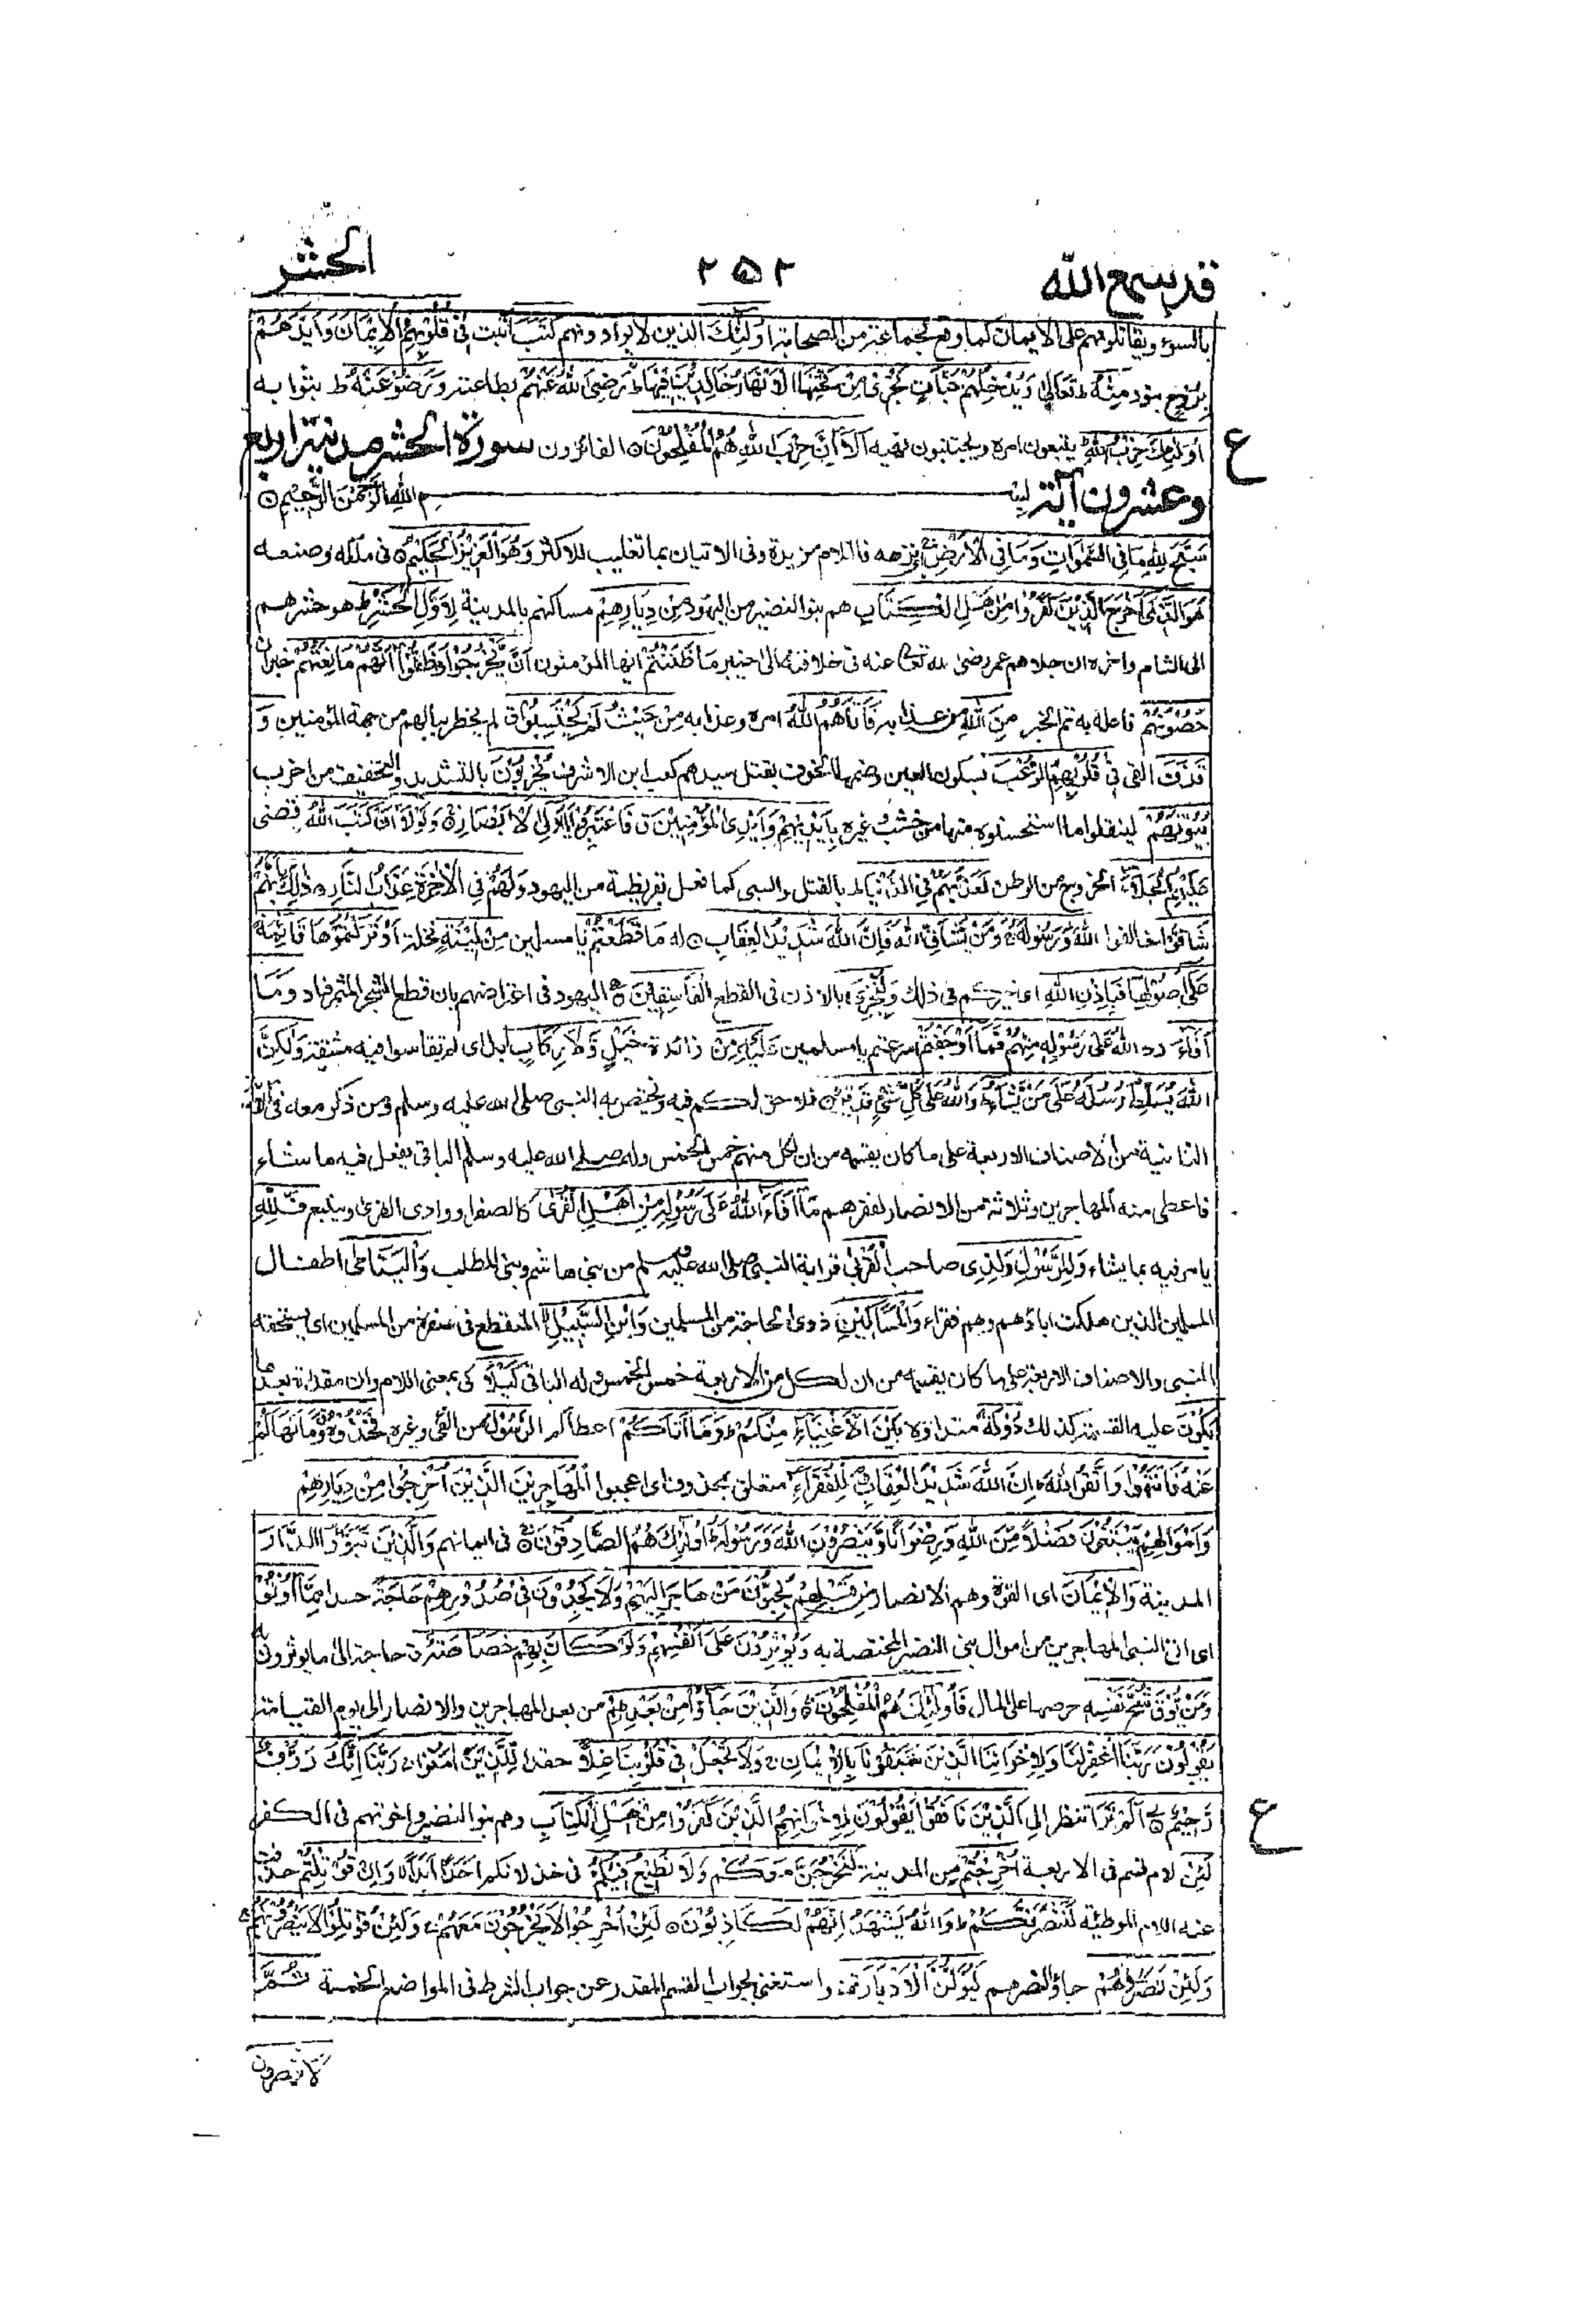 قد سمع الله ٢٥٢ الحشر
بالسوء ويقاتلونهم على الايمان كما وقع لجماعة من الصحابة اُولٰٓئِكَ الذين لا يوادونهم كَتَبَ اثبت فِيْ قُلُوْبِهِمُ الْاِيْمَانَ وَاَيَّدَهُمْ
بِرُوْحٍ بنور مِنْهُ ط تعالى وَيُدْخِلُهُمْ جَنَّاتٍ تَجْرِيْ مِنْ تَحْتِهَا الْاَنْهَارُ خَالِدِيْنَ فِيْهَا ط رَضِيَ اللّٰهُ عَنْهُمْ بطاعته وَرَضُوْا عَنْهُ ط بثوابه
اُولٰٓئِكَ حِزْبُ اللّٰهِ ط يتبعون امره ويجتنبون نهيه اَلَآ اِنَّ حِزْبَ اللّٰهِ هُمُ الْمُفْلِحُوْنَ ۝ الفائزون سورة الحشر مدنية اربع ع
وعشرون آية بسم اللّٰهِ الرَّحْمٰنِ الرَّحِيْمِ ۝
سَبَّحَ لِلّٰهِ مَا فِي السَّمٰوَاتِ وَمَا فِي الْاَرْضِ ج اى نزهه فاللام مزيدة وفى الاتيان بما تغليب للاكثر وَهُوَ الْعَزِيْزُ الْحَكِيْمُ ۝ فى ملكه وصنعه
هُوَ الَّذِيْٓ اَخْرَجَ الَّذِيْنَ كَفَرُوْا مِنْ اَهْلِ الْكِتَابِ هم بنو النضير من اليهود مِنْ دِيَارِهِمْ مساكنهم بالمدينة لِاَوَّلِ الْحَشْرِ ط هو حشرهم
الى الشام واخره ان جلاهم عمر رضى الله تعالى عنه فى خلافته الى خيبر مَا ظَنَنْتُمْ ايها المؤمنون اَنْ يَّخْرُجُوْا وَظَنُّوْٓا اَنَّهُمْ مَانِعَتُهُمْ خبر ان
حُصُوْنُهُمْ فاعله به تم الخبر مِنَ اللّٰهِ من عذابه فَاَتٰهُمُ اللّٰهُ امره وعذابه مِنْ حَيْثُ لَمْ يَحْتَسِبُوْا ق لم يخطر ببالهم من جهة المؤمنين وَ
قَذَفَ القى فِيْ قُلُوْبِهِمُ الرُّعْبَ بسكون العين وضمها الخوف بقتل سيدهم كعب ابن الاشرف يُخْرِبُوْنَ بالتشديد والتخفيف من اخرب
بُيُوْتَهُمْ لينقلوا ما استحسنوه منها من خشب وغيره بِاَيْدِيْهِمْ وَاَيْدِي الْمُؤْمِنِيْنَ ق فَاعْتَبِرُوْا يٰٓاُولِي الْاَبْصَارِ ۝ وَلَوْلَآ اَنْ كَتَبَ اللّٰهُ قضى
عَلَيْهِمُ الْجَلَآءَ الخروج من الوطن لَعَذَّبَهُمْ فِي الدُّنْيَا ط بالقتل والسبى كما فعل بقريظة من اليهود وَلَهُمْ فِي الْاٰخِرَةِ عَذَابُ النَّارِ ۝ ذٰلِكَ بِاَنَّهُمْ
شَآقُّوا خالفوا اللّٰهَ وَرَسُوْلَهٗ ج وَمَنْ يُّشَآقِّ اللّٰهَ فَاِنَّ اللّٰهَ شَدِيْدُ الْعِقَابِ ۝ له مَا قَطَعْتُمْ يا مسلمين مِنْ لِّيْنَةٍ نخلة اَوْ تَرَكْتُمُوْهَا قَآئِمَةً
عَلٰٓى اُصُوْلِهَا فَبِاِذْنِ اللّٰهِ اى خيركم فى ذلك وَلِيُخْزِيَ بالاذن فى القطع الْفَاسِقِيْنَ ۝ اليهود فى اعتراضهم بان قطع الشجر المثمر فساد وَمَآ
اَفَآءَ رد اللّٰهُ عَلٰى رَسُوْلِهٖ مِنْهُمْ فَمَآ اَوْجَفْتُمْ اسرعتم يا مسلمين عَلَيْهِ مِنْ زائدة خَيْلٍ وَّلَا رِكَابٍ ابل اى لم تقاسوا فيه مشقة وَلٰكِنَّ
اللّٰهَ يُسَلِّطُ رُسُلَهٗ عَلٰى مَنْ يَّشَآءُ ط وَاللّٰهُ عَلٰى كُلِّ شَيْءٍ قَدِيْرٌ ۝ فلا حق لكم فيه ويختص به النبى صلى الله عليه وسلم ومن ذكر معه فى الاية
الثانية من الاصناف الاربعة على ما كان يقسمه من ان لكل منهم خمس الخمس وله صلى الله عليه وسلم الباقى يفعل فيه ما شاء
فاعطى منه المهاجرين وثلاثة من الانصار لفقرهم مَآ اَفَآءَ اللّٰهُ عَلٰى رَسُوْلِهٖ مِنْ اَهْلِ الْقُرٰى كالصفراء ووادى القرى وينبع فَلِلّٰهِ
يامر فيه بما يشاء وَلِلرَّسُوْلِ وَلِذِي صاحب الْقُرْبٰى قرابة النبى صلى الله عليه وسلم من بنى هاشم وبنى المطلب وَالْيَتَامٰى اطفال
المسلمين الذين هلكت اباؤهم وهم فقراء وَالْمَسَاكِيْنِ ذوى الحاجة من المسلمين وَابْنِ السَّبِيْلِ المنقطع فى سفره من المسلمين اى يستحقه
النبى والاصناف الاربعة على ما كان يقسمه من ان لكل من الاربعة خمس الخمس وله الباقى كَيْلَا كى بمعنى اللام وان مقدرة بعدها
يَكُوْنَ عليه القسمة كذلك دُوْلَةً متداولا بَيْنَ الْاَغْنِيَآءِ مِنْكُمْ ط وَمَآ اٰتَاكُمُ اعطاكم الرَّسُوْلُ من الفئ وغيره فَخُذُوْهُ ق وَمَا نَهَاكُمْ
عَنْهُ فَانْتَهُوْا وَاتَّقُوا اللّٰهَ ط اِنَّ اللّٰهَ شَدِيْدُ الْعِقَابِ ۝ لِلْفُقَرَآءِ متعلق بمحذوف اى اعجبوا الْمُهَاجِرِيْنَ الَّذِيْنَ اُخْرِجُوْا مِنْ دِيَارِهِمْ
وَاَمْوَالِهِمْ يَبْتَغُوْنَ فَضْلًا مِّنَ اللّٰهِ وَرِضْوَانًا وَّيَنْصُرُوْنَ اللّٰهَ وَرَسُوْلَهٗ ط اُولٰٓئِكَ هُمُ الصَّادِقُوْنَ ۝ فى ايمانهم وَالَّذِيْنَ تَبَوَّؤُا الدَّارَ
المدينة وَالْاِيْمَانَ اى الفوه وهم الانصار مِنْ قَبْلِهِمْ يُحِبُّوْنَ مَنْ هَاجَرَ اِلَيْهِمْ وَلَا يَجِدُوْنَ فِيْ صُدُوْرِهِمْ حَاجَةً حسدا مِّمَّآ اُوْتُوْا
اى اتى النبى المهاجرين من اموال بنى النضير المختصة به وَيُؤْثِرُوْنَ عَلٰٓى اَنْفُسِهِمْ وَلَوْ كَانَ بِهِمْ خَصَاصَةٌ ق حاجة الى ما يوثرون به
وَمَنْ يُّوْقَ شُحَّ نَفْسِهٖ حرصها على المال فَاُولٰٓئِكَ هُمُ الْمُفْلِحُوْنَ ۝ وَالَّذِيْنَ جَآءُوْ مِنْ بَعْدِهِمْ من بعد المهاجرين والانصار الى يوم القيامة
يَقُوْلُوْنَ رَبَّنَا اغْفِرْ لَنَا وَلِاِخْوَانِنَا الَّذِيْنَ سَبَقُوْنَا بِالْاِيْمَانِ وَلَا تَجْعَلْ فِيْ قُلُوْبِنَا غِلًّا حقدا لِّلَّذِيْنَ اٰمَنُوْا رَبَّنَآ اِنَّكَ رَءُوْفٌ
رَّحِيْمٌ ۝ اَلَمْ تَرَ تنظر اِلَى الَّذِيْنَ نَافَقُوْا يَقُوْلُوْنَ لِاِخْوَانِهِمُ الَّذِيْنَ كَفَرُوْا مِنْ اَهْلِ الْكِتَابِ وهم بنو النضير واخوتهم فى الكفر ع
لَئِنْ لام قسم فى الاربعة اُخْرِجْتُمْ من المدينة لَنَخْرُجَنَّ مَعَكُمْ وَلَا نُطِيْعُ فِيْكُمْ فى خذلانكم اَحَدًا اَبَدًا وَّاِنْ قُوْتِلْتُمْ حذفت
عنه اللام الموطئة لَنَنْصُرَنَّكُمْ ط وَاللّٰهُ يَشْهَدُ اِنَّهُمْ لَكَاذِبُوْنَ ۝ لَئِنْ اُخْرِجُوْا لَا يَخْرُجُوْنَ مَعَهُمْ ج وَلَئِنْ قُوْتِلُوْا لَا يَنْصُرُوْنَهُمْ ج
وَلَئِنْ نَّصَرُوْهُمْ جاؤا لنصرهم لَيُوَلُّنَّ الْاَدْبَارَ قف واستغنى بجواب القسم المقدر عن جواب الشرط فى المواضع الخمسة ثُمَّ
لا ينصرون